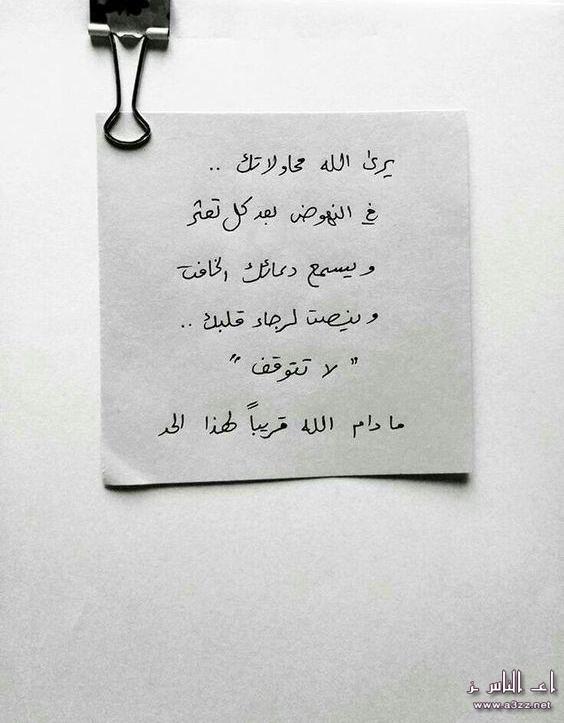 يرى الله محاولاتك ..
في النهوض بعد كل تعثر
و يسمع دعائك الخافت
و ينصت لرجاء قلبك ..
" لا تتوقف "
ما دام الله قريباً لهذا الحد
اعز الناس
www.a3zz.net